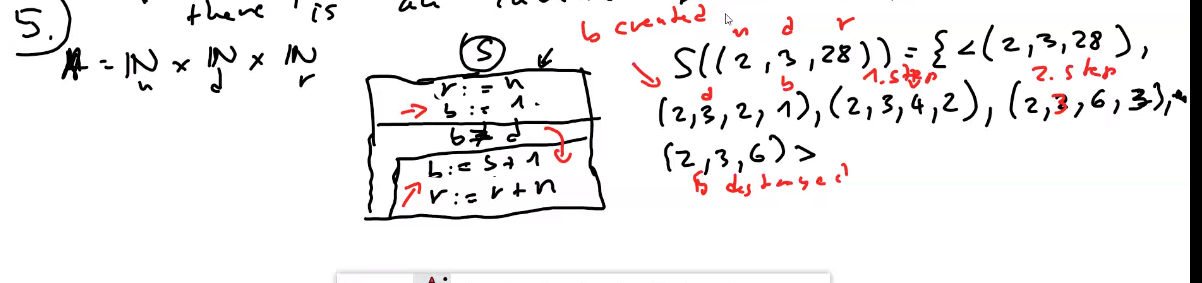 there is an
5.)
A = ℕ × ℕ × ℕ
n d r
S
r := n
b := 1.
b ≠ d
b := s + 1
r := r + n
b created
n d r
S((2, 3, 28)) = { <(2, 3, 28),
1. step 2. step
d b
(2, 3, 2, 1), (2, 3, 4, 2), (2, 3, 6, 3),
(2, 3, 6) >
b destroyed